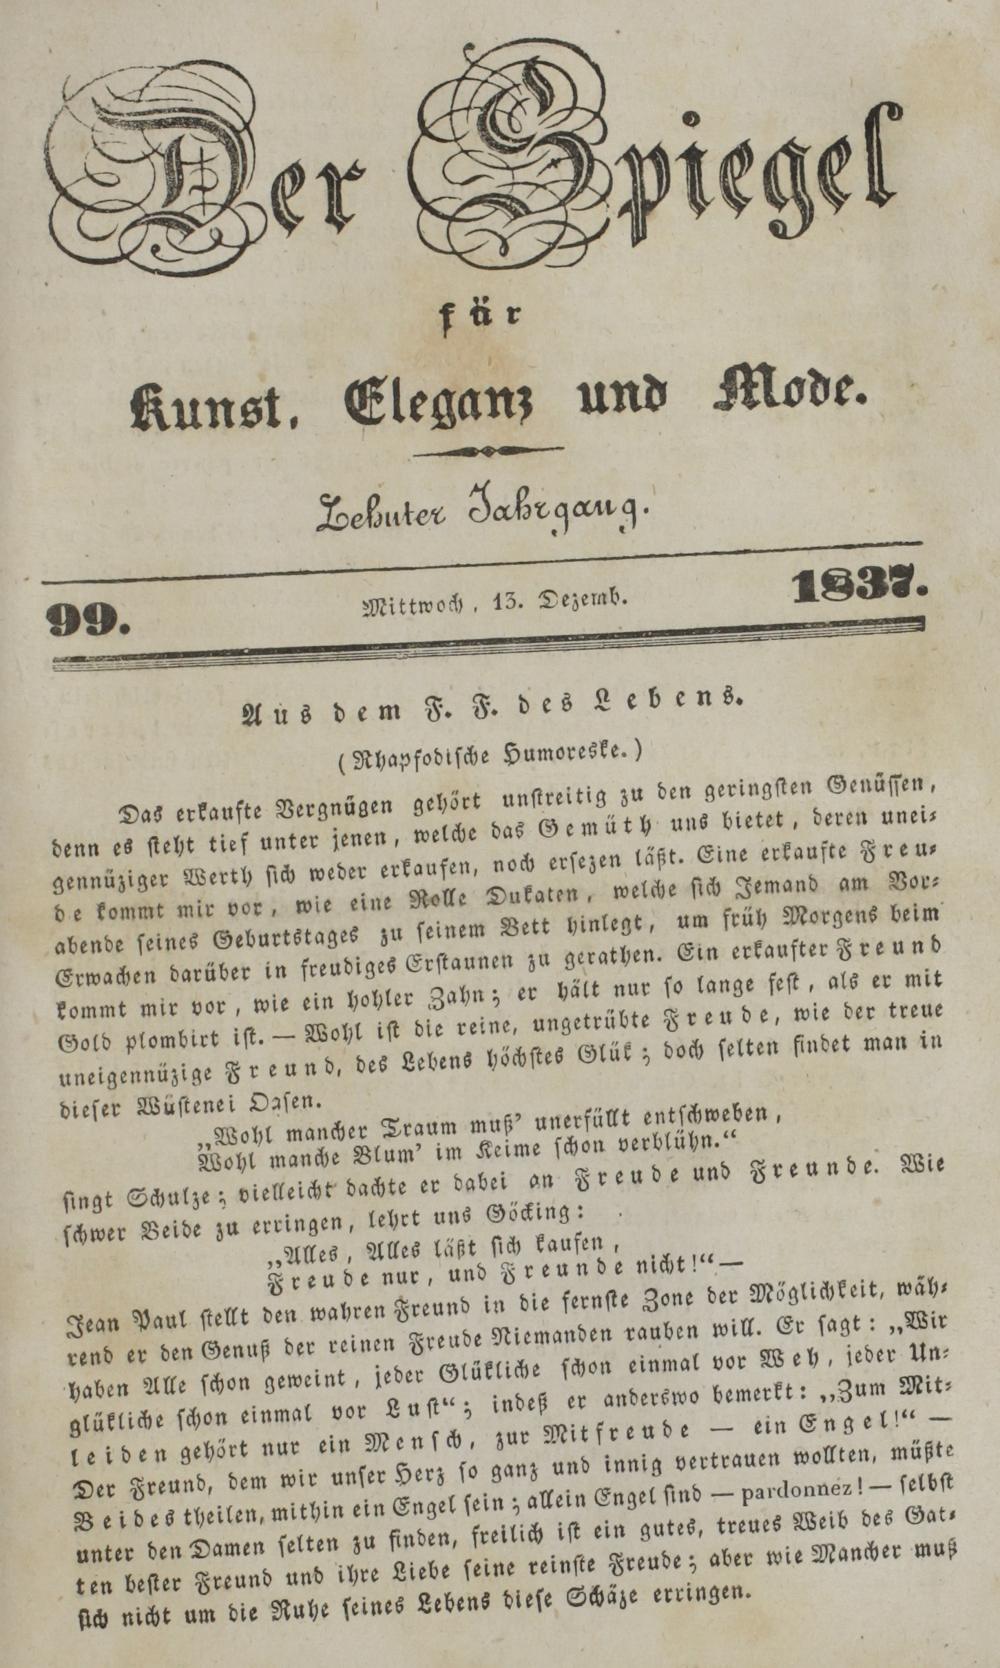 Der Spiegel
für
Kunst, Eleganz und Mode.
Zehnter Jahrgang.
99. Mittwoch, 13. Dezemb. 1837.
Aus dem F. F. des Lebens.
(Rhapsodische Humoreske.)
Das erkaufte Vergnügen gehört unstreitig zu den geringsten Genüssen,
denn es steht tief unter jenen, welche das Gemüth uns bietet, deren unei-
gennüziger Werth sich weder erkaufen, noch ersezen läßt. Eine erkaufte Freu-
de kommt mir vor, wie eine Rolle Dukaten, welche sich Jemand am Vor-
abende seines Geburtstages zu seinem Bett hinlegt, um früh Morgens beim
Erwachen darüber in freudiges Erstaunen zu gerathen. Ein erkaufter Freund
kommt mir vor, wie ein hohler Zahn; er hält nur so lange fest, als er mit
Gold plombirt ist. — Wohl ist die reine, ungetrübte Freude, wie der treue
uneigennüzige Freund, des Lebens höchstes Glük; doch selten findet man in
dieser Wüstenei Oasen.
„Wohl mancher Traum muß' unerfüllt entschweben,
Wohl manche Blum' im Keime schon verblühn.“
singt Schulze; vielleicht dachte er dabei an Freude und Freunde. Wie
schwer Beide zu erringen, lehrt uns Göcking:
„Alles, Alles läßt sich kaufen,
Freude nur, und Freunde nicht!“ —
Jean Paul stellt den wahren Freund in die fernste Zone der Möglichkeit, wäh-
rend er den Genuß der reinen Freude Niemanden rauben will. Er sagt: „Wir
haben Alle schon geweint, jeder Glükliche schon einmal vor Weh, jeder Un-
glükliche schon einmal vor Lust“; indeß er anderswo bemerkt: „Zum Mit-
leiden gehört nur ein Mensch, zur Mitfreude — ein Engel!“ —
Der Freund, dem wir unser Herz so ganz und innig vertrauen wollten, müßte
Beides theilen, mithin ein Engel sein; allein Engel sind — pardonnez! — selbst
unter den Damen selten zu finden, freilich ist ein gutes, treues Weib des Gat-
ten bester Freund und ihre Liebe seine reinste Freude; aber wie Mancher muß
sich nicht um die Ruhe seines Lebens diese Schäze erringen.